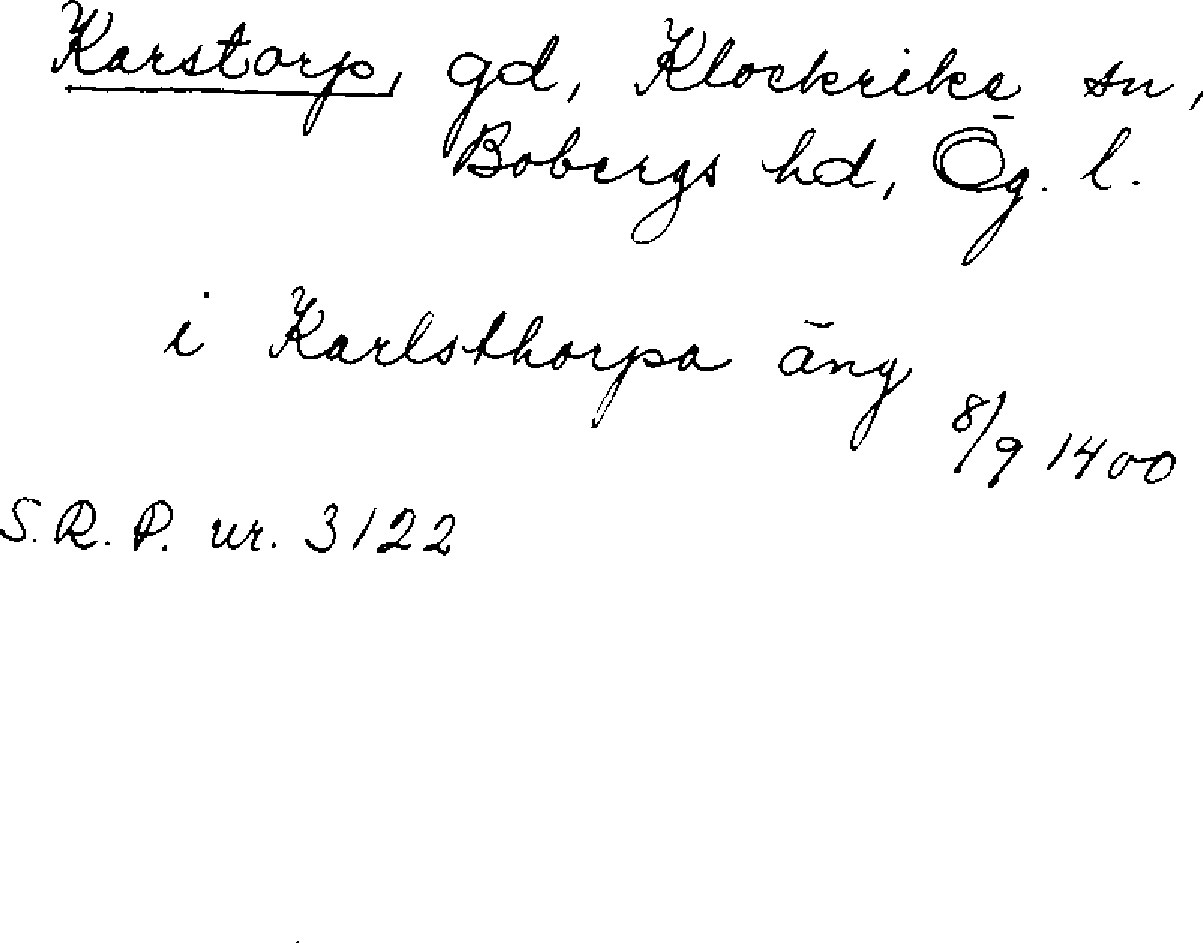 Karstorp, gd, Klockrike sn,
Bobergs hd, Ög. l.
i Karlsthorpa äng
8/9 1400
S.R.P. nr. 3122